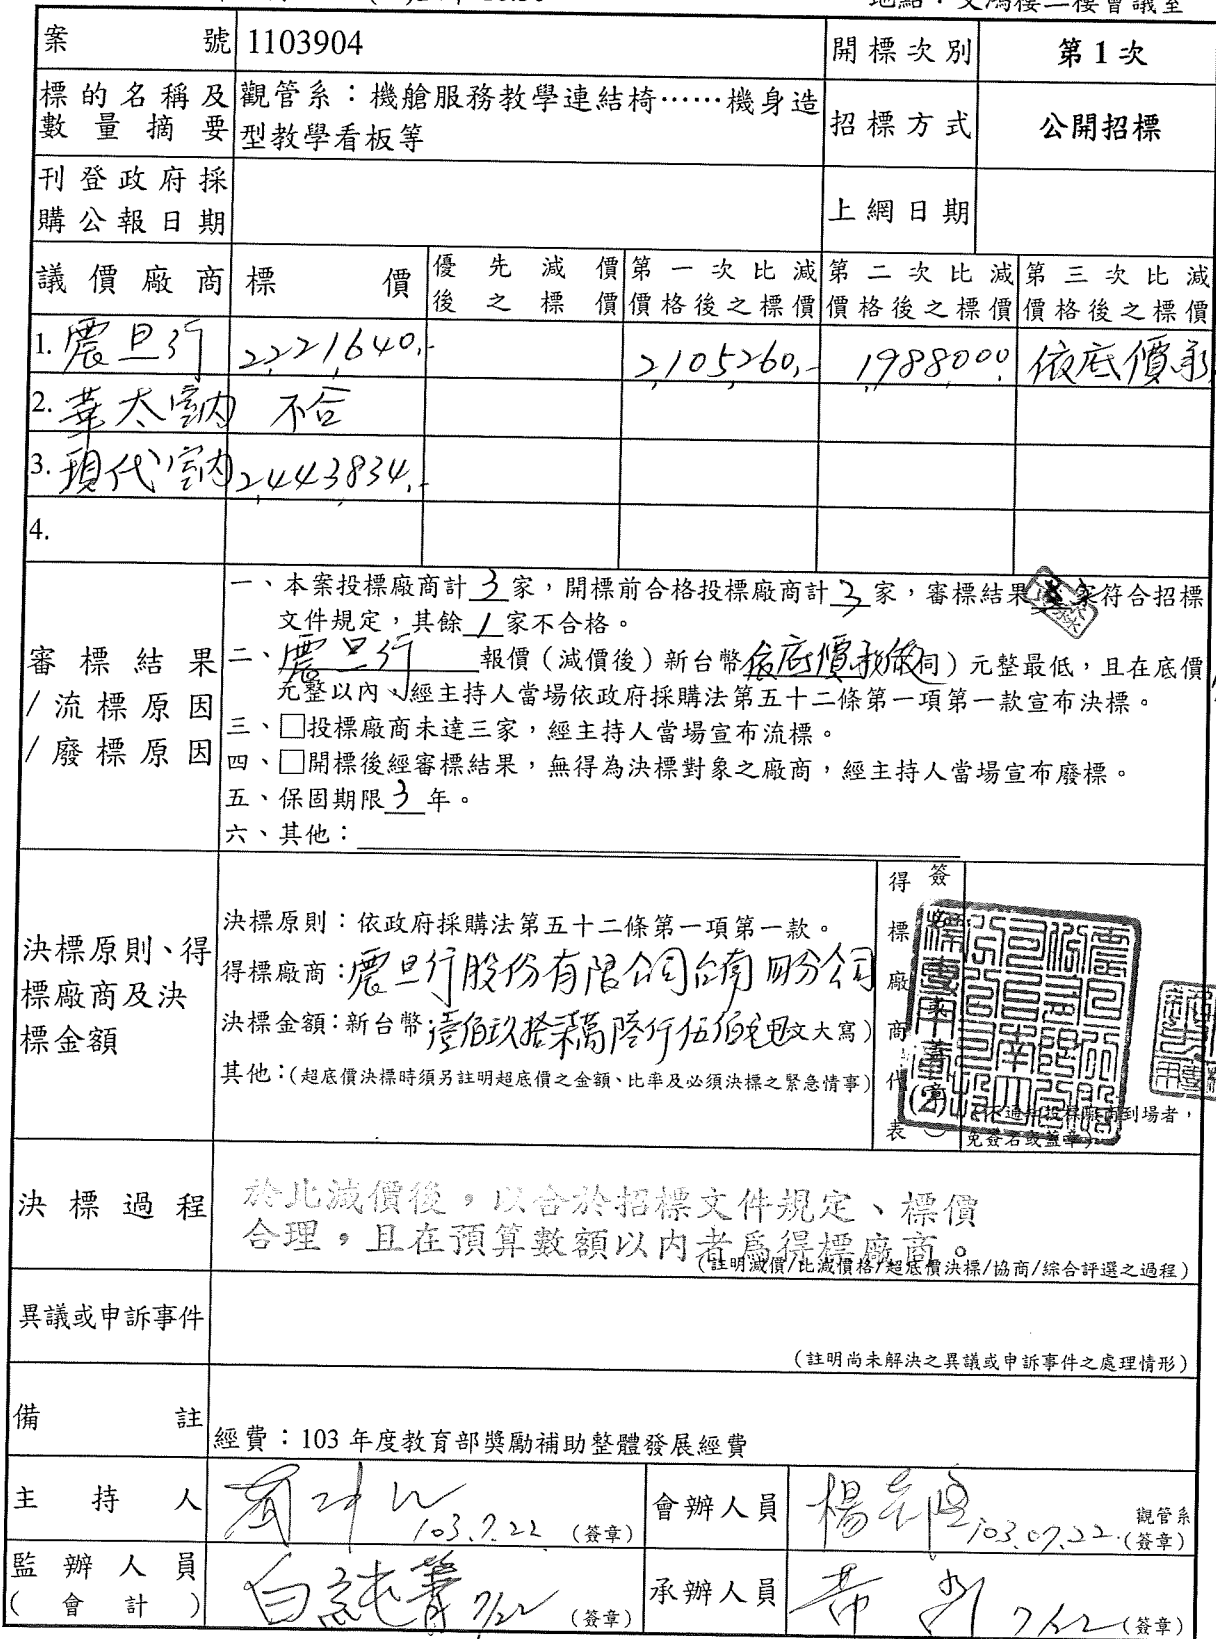 案號 1103904 開標次別 第1次
標的名稱及數量摘要 觀管系：機艙服務教學連結椅……機身造型教學看板等 招標方式 公開招標
刊登政府採購公報日期 上網日期
議價廠商 標價 優先減價後之標價 第一次比減價格後之標價 第二次比減價格後之標價 第三次比減價格後之標價
1. 震旦行 2,221,640.- 2,105,260.- 1,988,000. 依底價承
2. 華太室內 不合
3. 現代室內 2,443,834.-
4.
審標結果/流標原因/廢標原因
一、本案投標廠商計 3 家，開標前合格投標廠商計 3 家，審標結果 家符合招標
文件規定，其餘 1 家不合格。
二、震旦行 報價（減價後）新台幣 依底價承做 同）元整最低，且在底價
元整以內、經主持人當場依政府採購法第五十二條第一項第一款宣布決標。
三、□投標廠商未達三家，經主持人當場宣布流標。
四、□開標後經審標結果，無得為決標對象之廠商，經主持人當場宣布廢標。
五、保固期限 3 年。
六、其他：
決標原則、得標廠商及決標金額
決標原則：依政府採購法第五十二條第一項第一款。
得標廠商：震旦行股份有限公司台南四分公司
決標金額：新台幣 壹佰玖拾柒萬陸仟伍佰元 文大寫）
其他：(超底價決標時須另註明超底價之金額、比率及必須決標之緊急情事)
得標廠商代表
簽
(2)
（不通知投標廠商到場者，
免簽名或蓋章）
決標過程
於比減價後，以合於招標文件規定、標價
合理，且在預算數額以內者為得標廠商。
（註明減價/比減價格/超底價決標/協商/綜合評選之過程）
異議或申訴事件
（註明尚未解決之異議或申訴事件之處理情形）
備註 經費：103 年度教育部獎勵補助整體發展經費
主持人 103.7.22 （簽章） 會辦人員 103.07.22. 觀管系（簽章）
監辦人員（會計） 白純菁 7/22 （簽章） 承辦人員 7/22 （簽章）